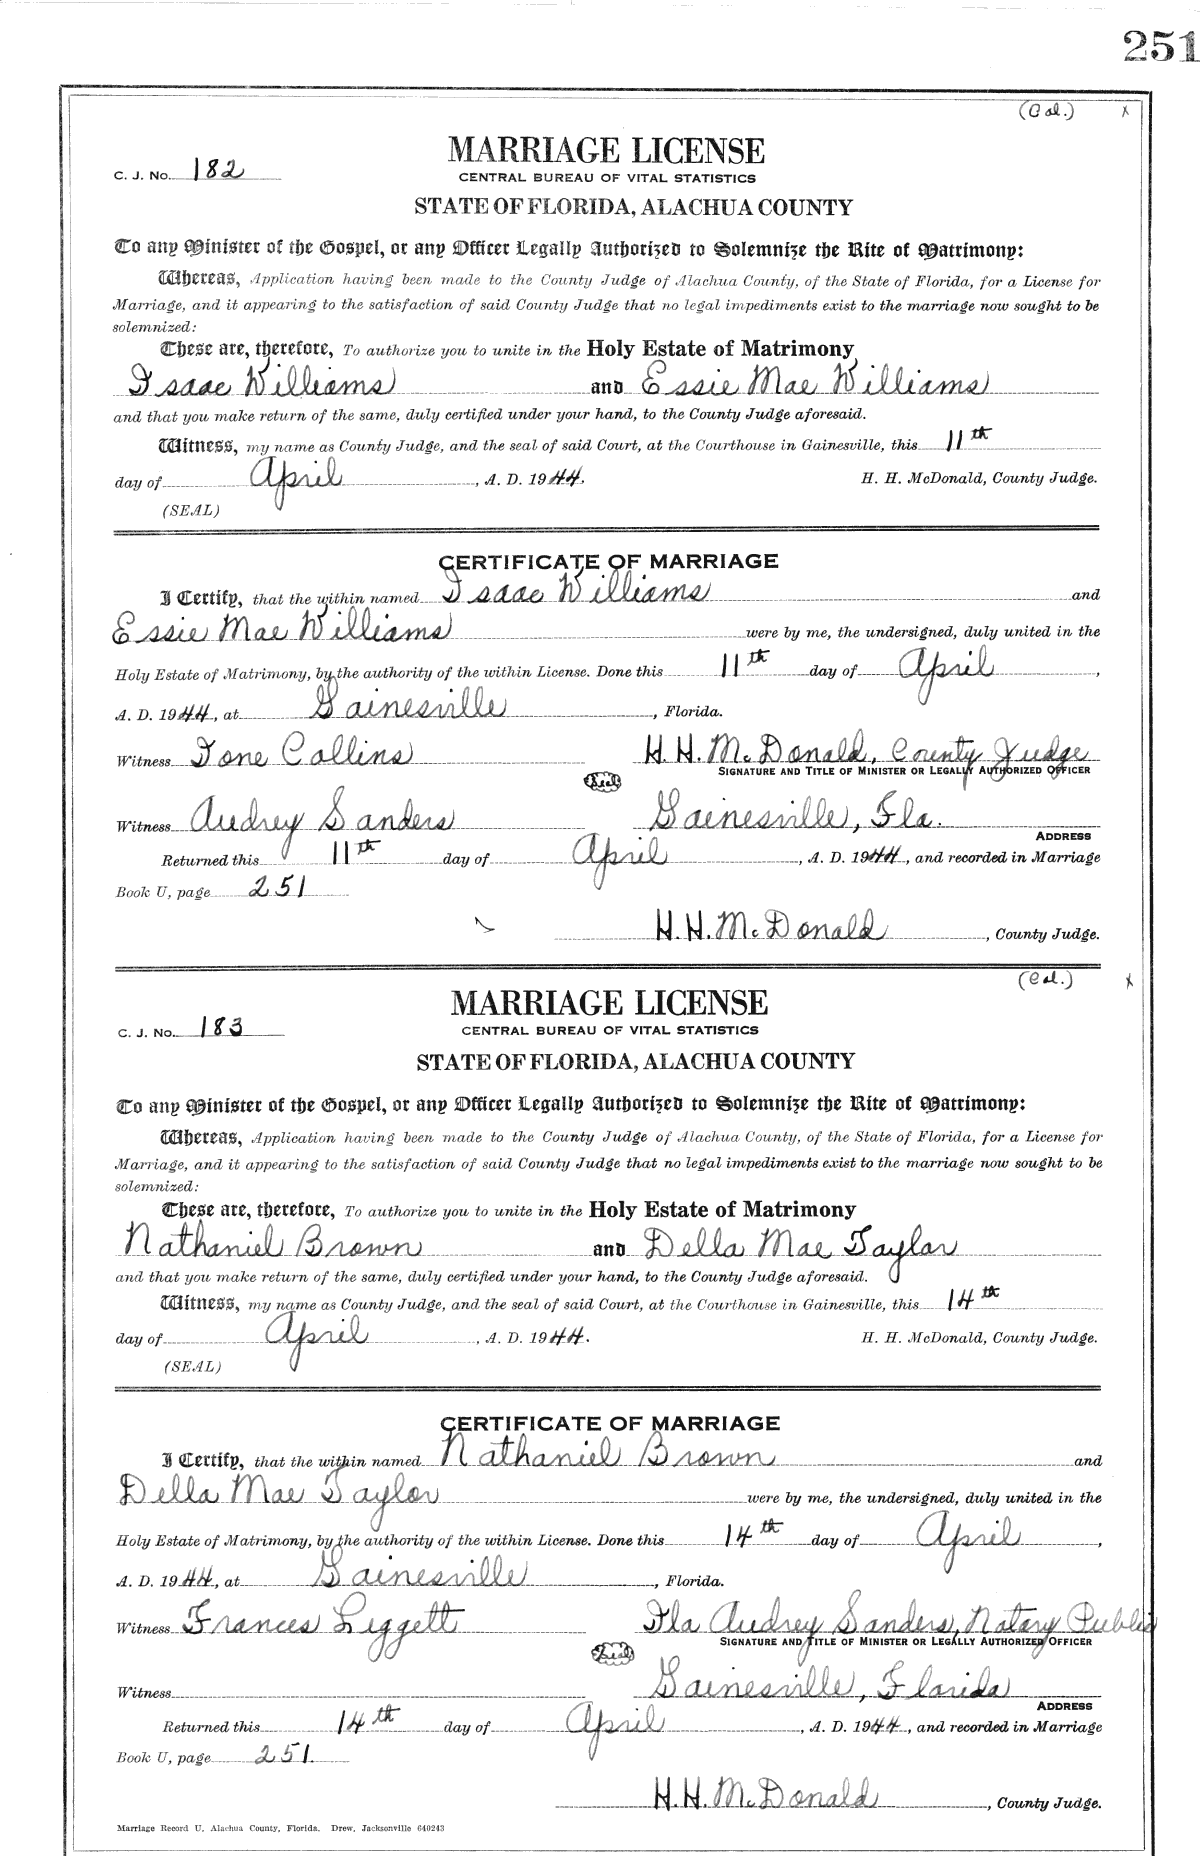 251
(Col.) x
MARRIAGE LICENSE
C. J. No. 182
CENTRAL BUREAU OF VITAL STATISTICS
STATE OF FLORIDA, ALACHUA COUNTY
To any Minister of the Gospel, or any Officer Legally Authorized to Solemnize the Rite of Matrimony:
Whereas, Application having been made to the County Judge of Alachua County, of the State of Florida, for a License for
Marriage, and it appearing to the satisfaction of said County Judge that no legal impediments exist to the marriage now sought to be
solemnized:
These are, therefore, To authorize you to unite in the Holy Estate of Matrimony
Isaac Williams and Essie Mae Williams
and that you make return of the same, duly certified under your hand, to the County Judge aforesaid.
Witness, my name as County Judge, and the seal of said Court, at the Courthouse in Gainesville, this 11th
day of April, A. D. 1944. H. H. McDonald, County Judge.
(SEAL)
CERTIFICATE OF MARRIAGE
I Certify, that the within named Isaac Williams and
Essie Mae Williams were by me, the undersigned, duly united in the
Holy Estate of Matrimony, by the authority of the within License. Done this 11th day of April,
A. D. 1944, at Gainesville, Florida.
Witness Ione Collins H. H. McDonald, County Judge
Seal SIGNATURE AND TITLE OF MINISTER OR LEGALLY AUTHORIZED OFFICER
Witness Audrey Sanders Gainesville, Fla.
ADDRESS
Returned this 11th day of April, A. D. 1944, and recorded in Marriage
Book U, page 251
H. H. McDonald, County Judge.
(Col.) x
MARRIAGE LICENSE
C. J. No. 183
CENTRAL BUREAU OF VITAL STATISTICS
STATE OF FLORIDA, ALACHUA COUNTY
To any Minister of the Gospel, or any Officer Legally Authorized to Solemnize the Rite of Matrimony:
Whereas, Application having been made to the County Judge of Alachua County, of the State of Florida, for a License for
Marriage, and it appearing to the satisfaction of said County Judge that no legal impediments exist to the marriage now sought to be
solemnized:
These are, therefore, To authorize you to unite in the Holy Estate of Matrimony
Nathaniel Brown and Della Mae Taylor
and that you make return of the same, duly certified under your hand, to the County Judge aforesaid.
Witness, my name as County Judge, and the seal of said Court, at the Courthouse in Gainesville, this 14th
day of April, A. D. 1944. H. H. McDonald, County Judge.
(SEAL)
CERTIFICATE OF MARRIAGE
I Certify, that the within named Nathaniel Brown and
Della Mae Taylor were by me, the undersigned, duly united in the
Holy Estate of Matrimony, by the authority of the within License. Done this 14th day of April,
A. D. 1944, at Gainesville, Florida.
Witness Frances Liggett Ila Audrey Sanders, Notary Public
Seal SIGNATURE AND TITLE OF MINISTER OR LEGALLY AUTHORIZED OFFICER
Gainesville, Florida
Witness
ADDRESS
Returned this 14th day of April, A. D. 1944, and recorded in Marriage
Book U, page 251.
H. H. McDonald, County Judge.
Marriage Record U, Alachua County, Florida. Drew, Jacksonville 640243